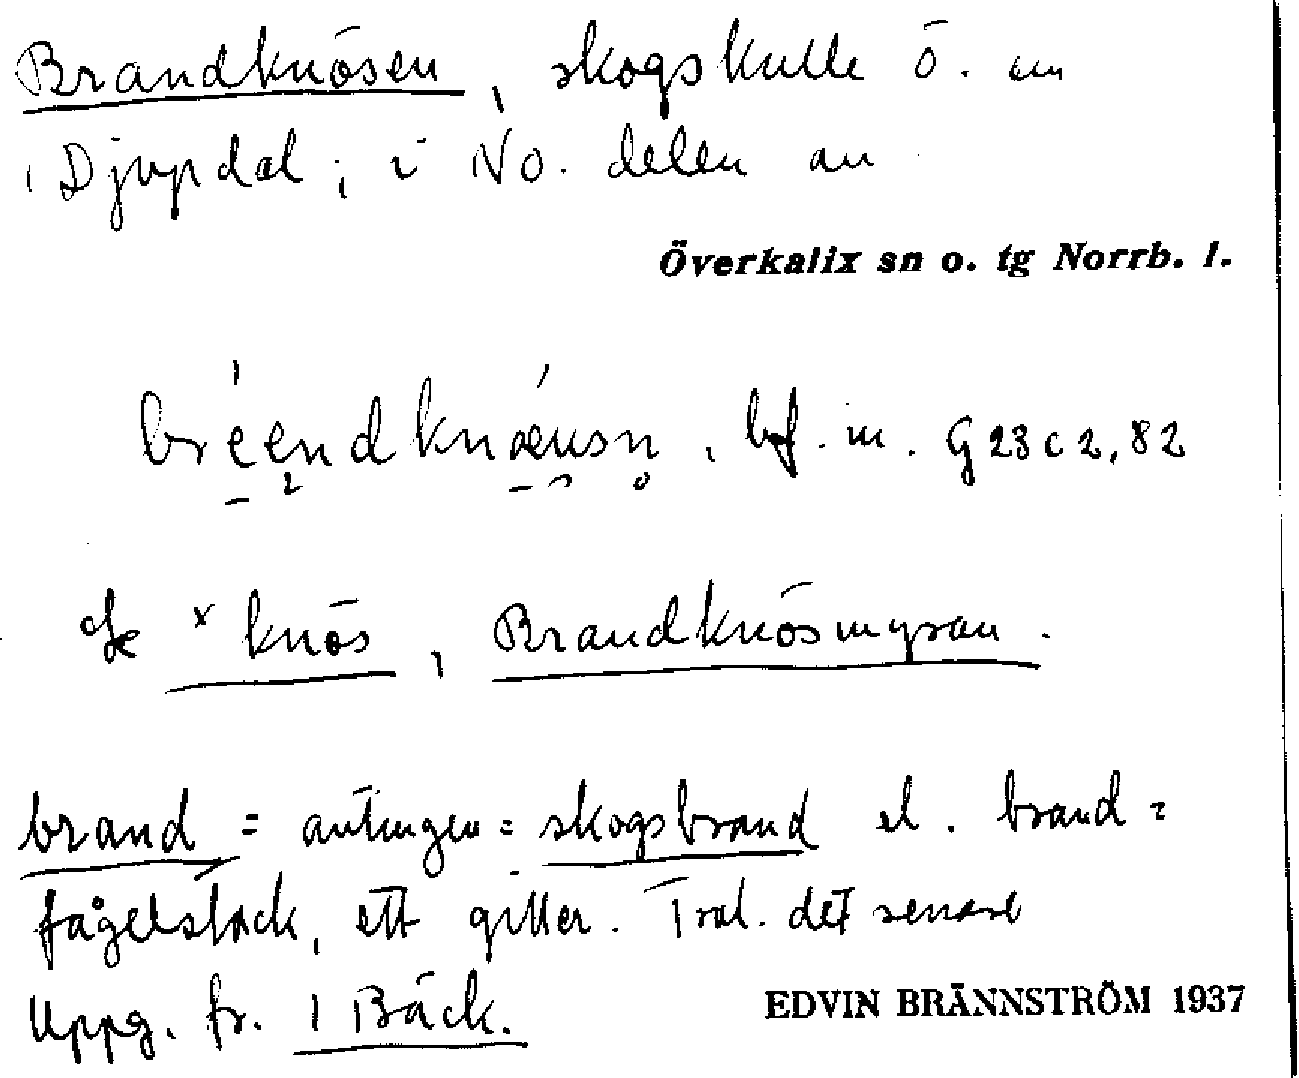 Brandknösen, skogskulle ö. om
1 Djupdal; i NO. delen av
Överkalix sn o. tg Norrb. l.
bréendknǽusn. bf. m. G 23 c 2, 82
× knös, Brandknösmyran.
brand = antingen = skogsbrand el. brand =
fågelstack, ett giller. Trol. det senare
Uppg. fr. 1 Bäck.
EDVIN BRÄNNSTRÖM 1937